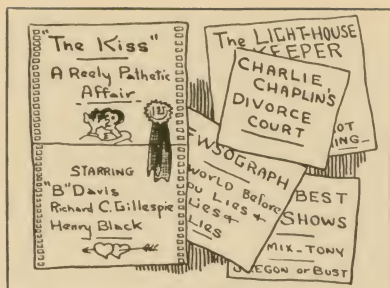 "The Kiss"
A Reely Pathetic
Affair
STARRING
"B" Davis
Richard C. Gillespie
Henry Black
The LIGHT-HOUSE
KEEPER
CHARLIE
CHAPLIN'S
DIVORCE
COURT
EWSOGRAPH
WORLD Before
OU LIES &
LIES &
LIES
BEST
SHOWS
MIX - TONY
OREGON or BUST